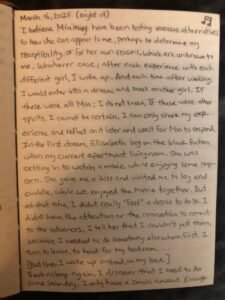 March 16, 2025 (night of)
I believe Min may have been testing various alternatives
to how she can appear to me, perhaps to determine my
receptibility, or for her own reasons, which are unknown to
me. Whichever case; after each experience with each
different girl, I woke up. And each time after waking,
I would enter into a dream and meet another girl. If
these were all Min; I do not know, If these were other
spirits, I cannot be certain, I can only share my exp-
erience, and reflect on it later and wait for Min to respond.
In the first dream, Elisabeth lay on the black futon
within my current apartment livingroom. She was
settling in to watch a movie while enjoying some pop-
corn. She gave me a kiss and invited me to lay and
cuddle while we enjoyed the movie together. But
at that time, I didn't really "feel" a desire to do so. I
didn't have the attraction or the connection to commit
to the advances, I tell her that I couldn't just then,
because I needed to do something elsewhere first. I
turn to leave, to head for my bedroom...
[But then I wake up instead in my bed.]
Back asleep again. I discover that I need to do
some laundry. I only have a small amount enough